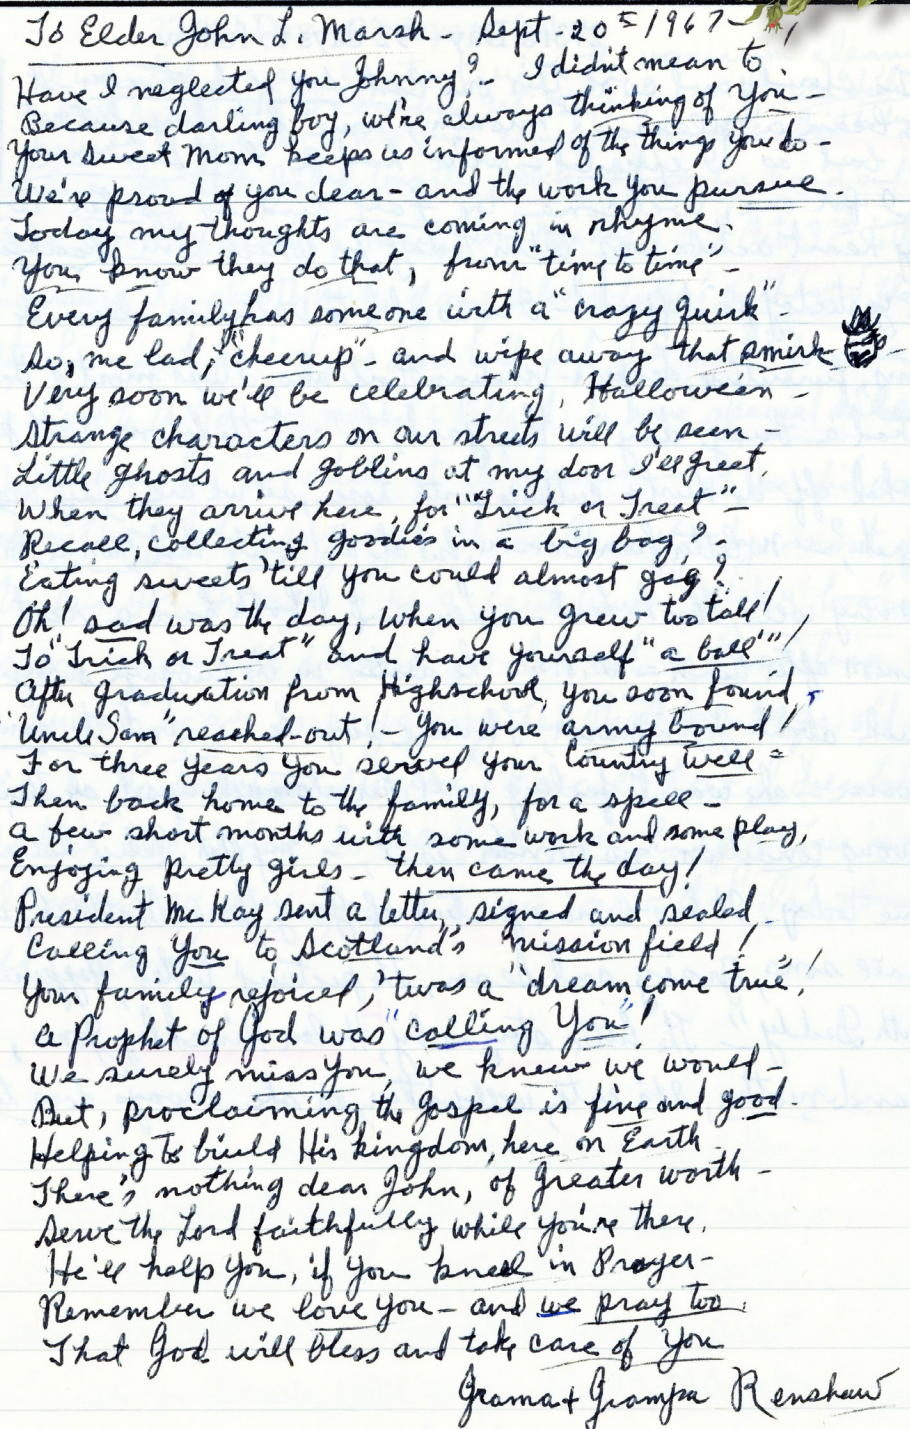 To Elder John L. Marsh - Sept - 20th 1967 -
Have I neglected you Johnny? - I didn't mean to!
Because darling boy, we're always thinking of you -
Your sweet Mom keeps us informed of the things you do -
We're proud of you dear - and the work you pursue.
Today my thoughts are coming in rhyme.
You know they do that, from "time to time" -
Every family has someone with a "crazy quirk" -
So, me lad, "cheerup" - and wipe away that smirk
Very soon we'll be celebrating, Halloween -
Strange characters on our streets will be seen -
Little ghosts and goblins at my door I'll greet,
When they arrive here, for "Trick or Treat" -
Recall, collecting goodies in a big bag? -
Eating sweets 'till you could almost gag?
Oh! sad was the day, when you grew too tall!
To "Trick or Treat" and have yourself "a ball"!
After graduation from Highschool, you soon found,
"Uncle Sam" reached-out! - You were army bound!
For three years you served your Country well -
Then back home to the family, for a spell -
A few short months with some work and some play,
Enjoying pretty girls - then came the day!
President McKay sent a letter, signed and sealed -
Calling You to Scotland's "mission field"!
Your family rejoiced, 'twas a "dream come true"!
A Prophet of God was "calling You"!
We surely miss you, we knew we would -
But, proclaiming the Gospel is fine and good.
Helping to build His kingdom, here on Earth -
There's nothing dear John, of Greater worth -
Serve the Lord faithfully while you're there,
He'll help you, if you kneel in Prayer -
Remember we love you - and we pray too,
That God will bless and take care of You
Grama + Grampa Renshaw